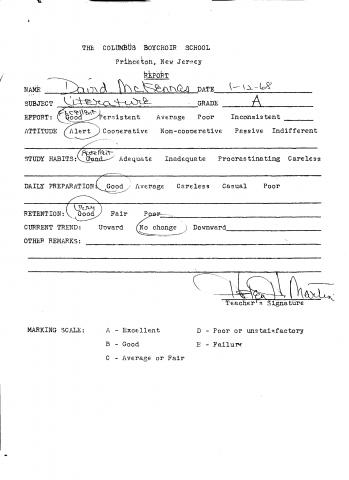 THE COLUMBUS BOYCHOIR SCHOOL
Princeton, New Jersey
REPORT
NAME David McKennee DATE 1-12-68
SUBJECT Literature GRADE A
Excellent
EFFORT: Good Persistent Average Poor Inconsistent
ATTITUDE Alert Cooperative Non-cooperative Passive Indifferent
Excellent
STUDY HABITS: Good Adequate Inadequate Procrastinating Careless
DAILY PREPARATION: Good Average Careless Casual Poor
Very
RETENTION: Good Fair Poor
CURRENT TREND: Upward No change Downward
OTHER REMARKS:
H. Martin
Teacher's Signature
MARKING SCALE: A - Excellent D - Poor or unstaisfactory
B - Good E - Failure
C - Average or Fair